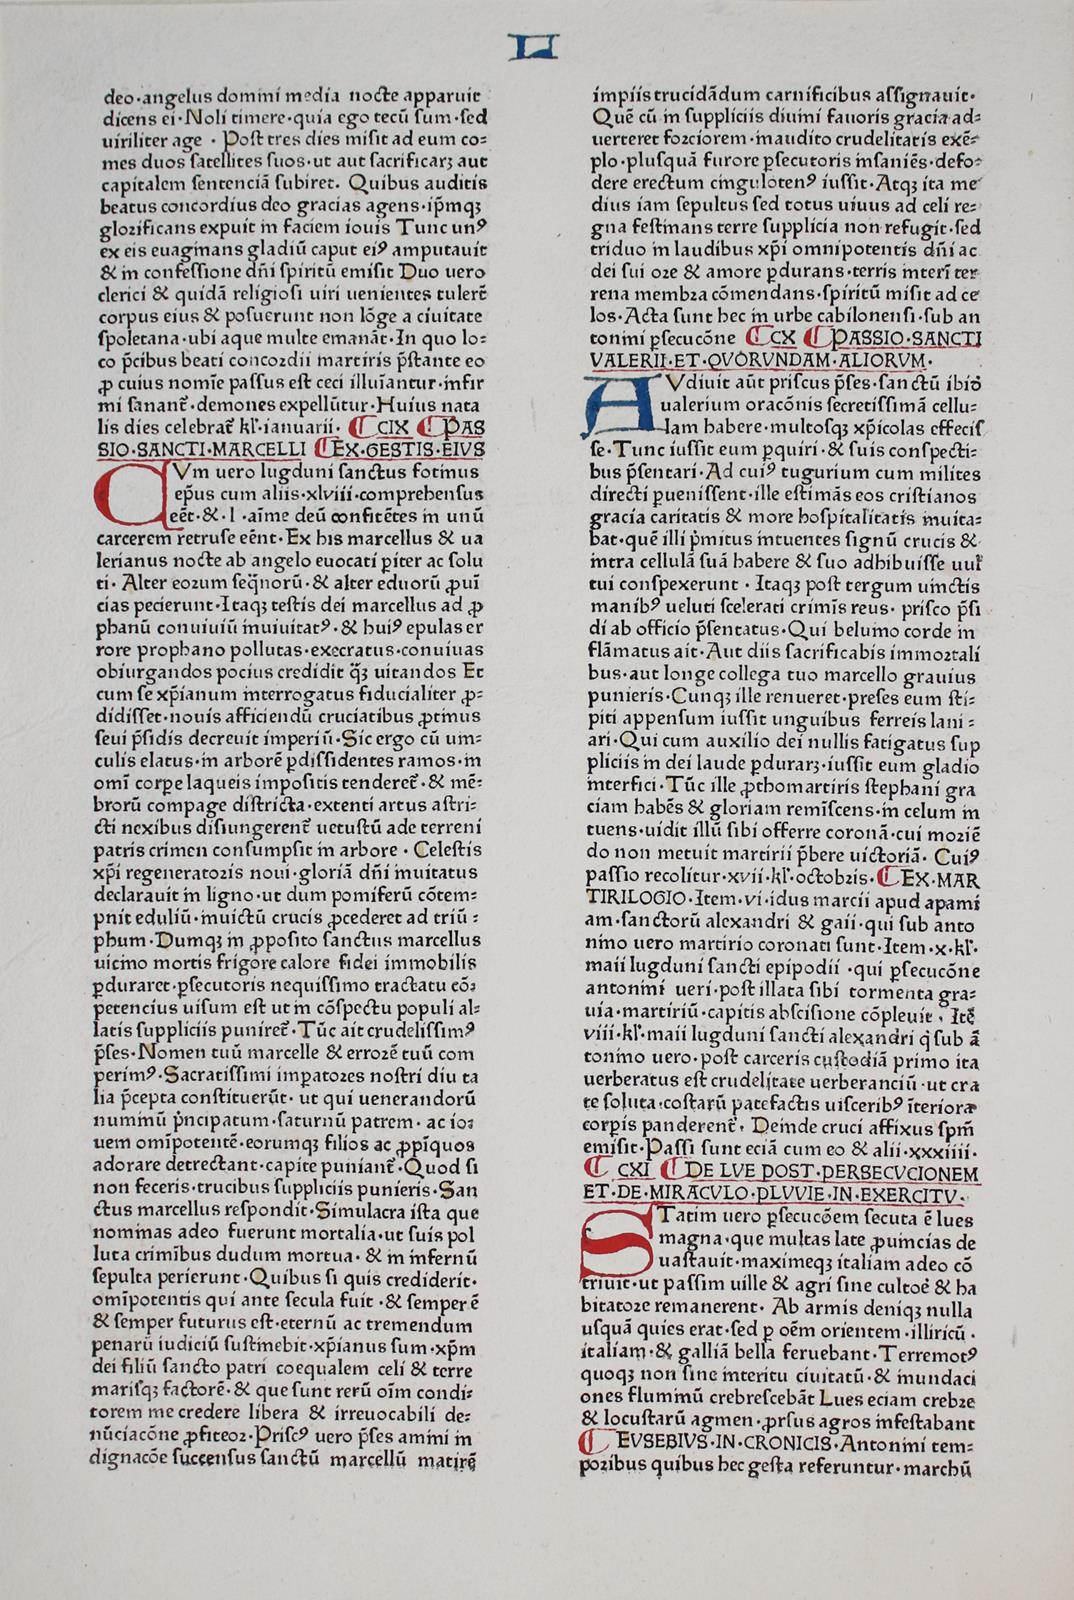 L
deo·angelus domini media nocte apparuit
dicens ei·Noli timere·quia ego tecū sum·sed
uiriliter age · Post tres dies misit ad eum co=
mes duos satellites suos·ut aut sacrificarꝫ aut
capitalem sentenciā subiret. Quibus auditis
beatus concordius deo gracias agens·ip̄mqꝫ
glorificans expuit in faciem iouis Tunc unꝰ
ex eis euaginans gladiū caput eiꝰ amputauit
& in confessione dn̄i spiritū emisit Duo uero
clerici & quidā religiosi uiri uenientes tulert̄
corpus eius & posuerunt non lōge a ciuitate
spoletana·ubi aque multe emanāt·In quo lo=
co p̄cibus beati concordii martiris p̄stante eo
ꝓ cuius noīe passus est ceci illuīantur·infir
mi sanant̄·demones expellūtur·Huius nata
lis dies celebrat̄ kl̄·ianuarii. CIX PAS
SIO·SANCTI·MARCELLI EX·GESTIS·EIVS
CVm uero lugduni sanctus fotinus
ep̄us cum aliis·xlviii·comprehensus
eēt·&·l·aīme deū confitētes in unū
carcerem retruse eēnt·Ex his marcellus & ua
lerianus nocte ab angelo euocati piter ac solu
ti· Alter eorum seq̄norū·& alter eduorū ꝓuī
cias pecierunt·Itaqꝫ testis dei marcellus ad ꝓ
phanū conuiuiū inuiuitatꝰ·& huiꝰ epulas er
rore prophano pollutas·execratus·conuiuas
obiurgandos pocius credidit q̄ꝫ uitandos Et
cum se xp̄ianum interrogatus fiducialiter ꝓ=
didisset·nouis afficiendū cruciatibus ꝓtinus
seui p̄sidis decreuit imperiū·Sic ergo cū uin=
culis elatus·in arborē ꝑdissidentes ramos·in
omī corꝑe laqueis impositis tenderet̄·& mē=
brorū compage districta·extenti artus astri=
cti nexibus disiungerent̄ uetustū ade terreni
patris crimen consumpsit in arbore · Celestis
xp̄i regeneratoris noui·gloriā dn̄i inuitatus
declarauit in ligno·ut dum pomiferū cōtem=
pnit eduliū·inuictū crucis ꝓcederet ad triū=
phum·Dumqꝫ in ꝓposito sanctus marcellus
uicino mortis frigore calore fidei immobilis
ꝑduraret·ꝑsecutoris nequissimo tractatu cō=
petencius uisum est ut in cōspectu populi al=
latis suppliciis puniret̄·Tūc ait crudelissimꝰ
p̄ses·Nomen tuū marcelle & errorē tuū com
perimꝰ·Sacratissimi imꝑatores nostri diu ta
lia p̄cepta constituerūt· ut qui uenerandorū
nummū p̄ncipatum·saturnū patrem· ac io=
uem omīpotentē·eorumqꝫ filios ac ꝓpīquos
adorare detrectant·capite puniant̄·Quod si
non feceris·trucibus suppliciis punieris·San
ctus marcellus respondit·Simulacra ista que
nominas adeo fuerunt mortalia·ut suis pol
luta crimībus dudum mortua· & in infernū
sepulta perierunt·Quibus si quis crediderit·
omīpotentis qui ante secula fuit·& semper ē
& semper futurus est·eternū ac tremendum
penarū iudiciū sustinebit·xp̄ianus sum·xp̄m
dei filiū sancto patri coequalem celi & terre
marisqꝫ factorē·& que sunt rerū oīm condi=
torem me credere libera & irreuocabili de=
nūciacōne ꝓfiteor·Priscꝰ uero p̄ses animi in
dignacōe succensus sanctū marcellū matirē
impiis trucidādum carnificibus assignauit·
Quē cū in suppliciis diuini fauoris gracia ad=
uerteret forciorem·inaudito crudelitatis exē=
plo·plusquā furore ꝑsecutoris insaniēs·defo=
dere erectum cinguloteñꝰ iussit·Atqꝫ ita me
dius iam sepultus sed totus uiuus ad celi re=
gna festinans terre supplicia non refugit·sed
triduo in laudibus xp̄i omnipotentis dn̄i ac
dei sui ore & amore ꝑdurans·terris interī ter
rena membra cōmendans·spiritū misit ad ce
los·Acta sunt hec in urbe cabilonensi·sub an
tonini ꝑsecucōne CX PASSIO·SANCTI
VALERII·ET·QVORVNDAM·ALIORVM·
AVdiuit aūt priscus p̄ses·sanctū ibidē
ualerium oracōnis secretissimā cellu=
lam habere·multosqꝫ xp̄icolas effecis
se·Tunc iussit eum ꝑquiri·& suis conspecti=
bus p̄sentari·Ad cuiꝰ tugurium cum milites
directi ꝑuenissent·ille estimās eos cristianos
gracia caritatis & more hospitalitatis inuita=
bat·quē illi p̄mitus intuentes signū crucis &
intra cellulā suā habere & suo adhibuisse uul
tui conspexerunt · Itaqꝫ post tergum uinctis
manibꝰ ueluti scelerati crimīs reus· prisco p̄si
di ab officio p̄sentatus·Qui beluino corde in
flāmatus ait·Aut diis sacrificabis immortali
bus·aut longe collega tuo marcello grauius
punieris·Cunqꝫ ille renueret·preses eum sti=
piti appensum iussit unguibus ferreis lani=
ari·Qui cum auxilio dei nullis fatigatus sup
pliciis in dei laude ꝑdurarꝫ·iussit eum gladio
interfici·Tūc ille ꝓthomartiris stephani gra
ciam habēs & gloriam remīscens·in celum in
tuens·uidit illū sibi offerre coronā·cui moriē
do non metuit martirii p̄bere uictoriā. Cuiꝰ
passio recolitur·xvii·kl̄·octobris·EX·MAR
TIRILOGIO·Item·vi·idus marcii apud apami
am·sanctorū alexandri & gaii·qui sub anto
nino uero martirio coronati sunt·Item·x·kl̄·
maii lugduni sancti epipodii ·qui ꝑsecucōne
antonini ueri·post illata sibi tormenta gra=
uia·martiriū·capitis abscisione cōpleuit · Itē
viii·kl̄·maii lugduni sancti alexandri q̄ sub ā
tonino uero·post carceris custodiā primo ita
uerberatus est crudelitate uerberanciū·ut cra
te soluta·costarū patefactis uiscerib9 īteriora
corpis panderent̄. Deinde cruci affixus spm̄
emisit·Passi sunt eciā cum eo & alii·xxxiiii·
CXI DE LVE POST·PERSECVCIONEM
ET·DE·MIRACVLO·PLVVIE·IN·EXERCITV·
STatim uero ꝑsecucōem secuta ē lues
magna·que multas late ꝓuincias de
uastauit·maximeqꝫ italiam adeo cō
triuit·ut passim uille & agri sine cultoē & ha
bitatore remanerent· Ab armis deniqꝫ nulla
usquā quies erat·sed ꝑ oēm orientem·illiricū·
italiam·& galliā bella feruebant·Terremotꝰ
quoqꝫ non sine interitu ciuitatū·& inundaci
ones fluminū crebrescebāt Lues eciam crebre
& locustarū agmen·ꝓrsus agros infestabant
EVSEBIVS·IN·CRONICIS·Antonini tem=
poribus quibus hec gesta referuntur·marchū